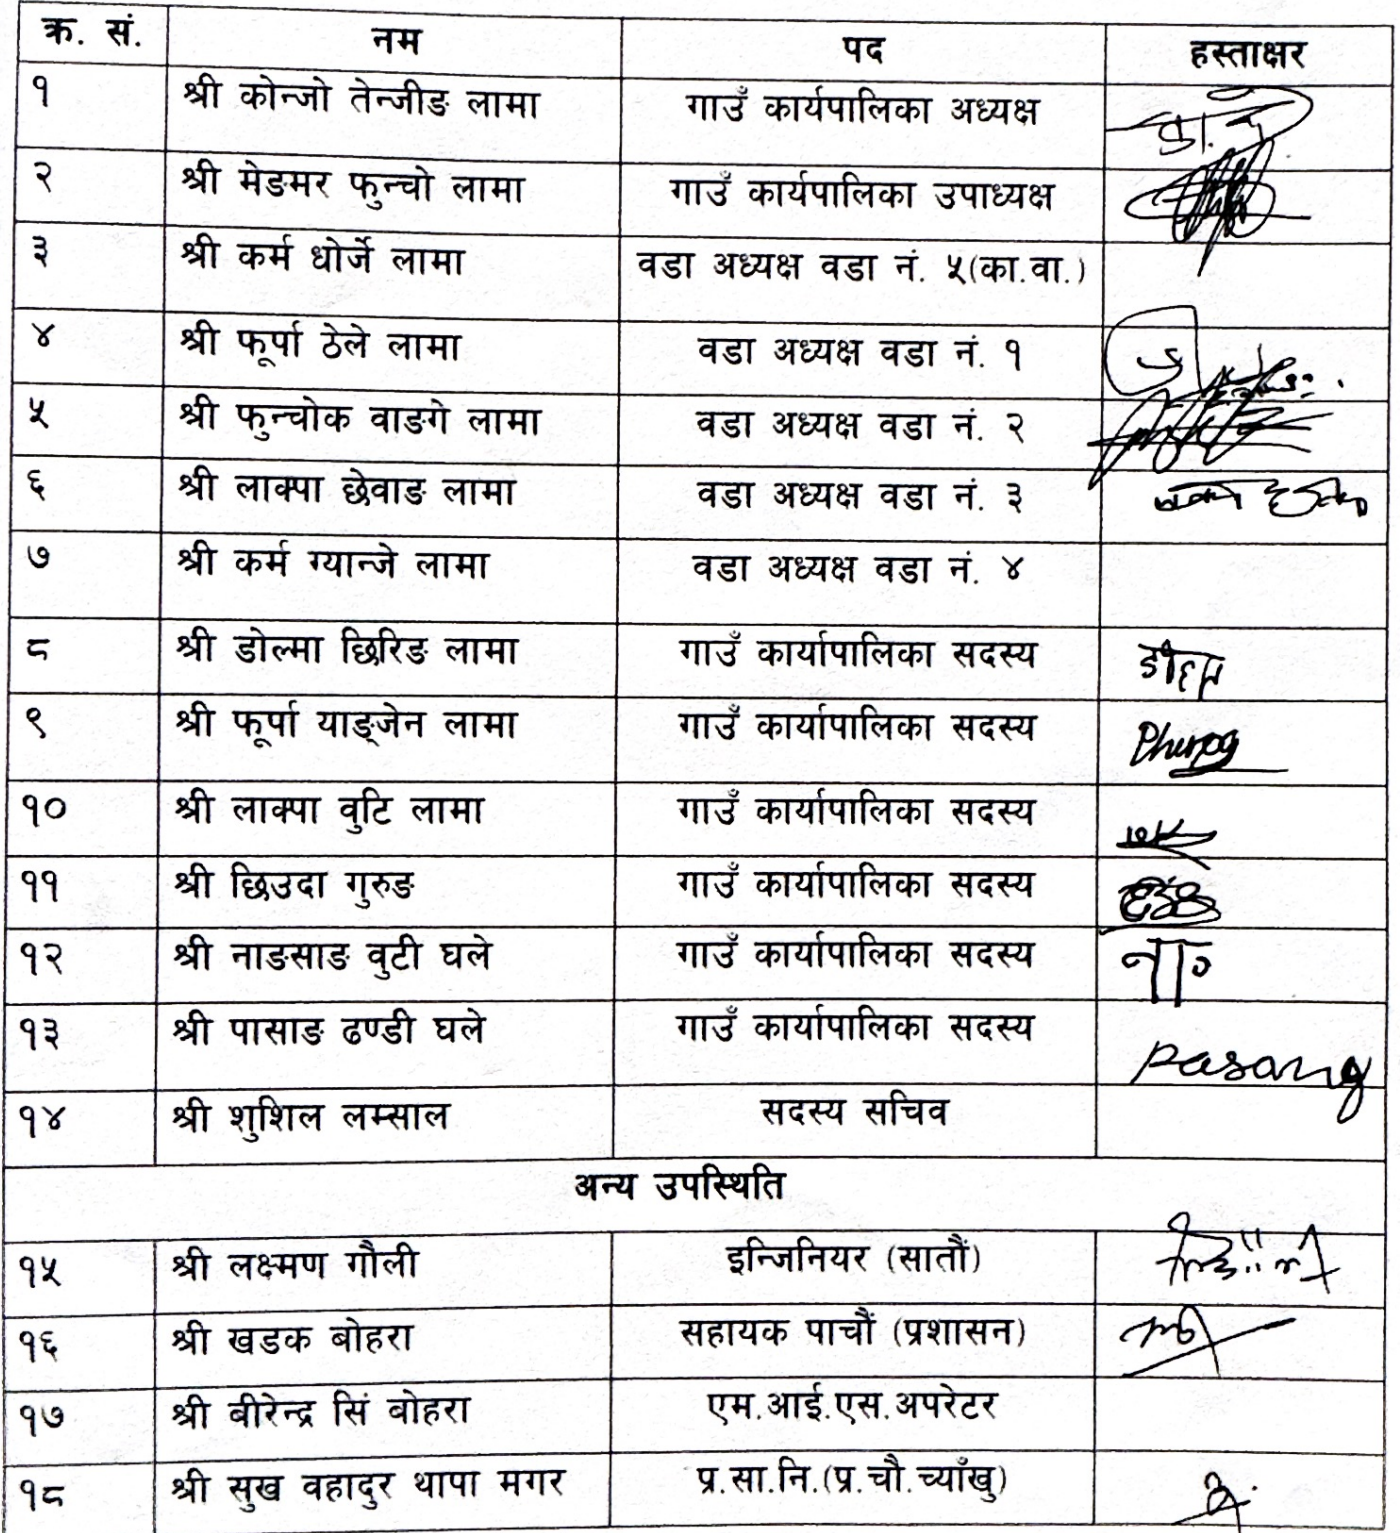 क्र. सं. नम पद हस्ताक्षर
१ श्री कोन्जो तेन्जीङ लामा गाउँ कार्यपालिका अध्यक्ष
२ श्री मेङमर फुन्चो लामा गाउँ कार्यपालिका उपाध्यक्ष
३ श्री कर्म धोर्जे लामा वडा अध्यक्ष वडा नं. ५(का.वा.)
४ श्री फूर्पा ठेले लामा वडा अध्यक्ष वडा नं. १
५ श्री फुन्चोक वाङगे लामा वडा अध्यक्ष वडा नं. २
६ श्री लाक्पा छेवाङ लामा वडा अध्यक्ष वडा नं. ३
७ श्री कर्म ग्यान्जे लामा वडा अध्यक्ष वडा नं. ४
८ श्री डोल्मा छिरिङ लामा गाउँ कार्यापालिका सदस्य
९ श्री फूर्पा याङ्जेन लामा गाउँ कार्यापालिका सदस्य
१० श्री लाक्पा वुटि लामा गाउँ कार्यापालिका सदस्य
११ श्री छिउदा गुरुङ गाउँ कार्यापालिका सदस्य
१२ श्री नाङसाङ वुटी घले गाउँ कार्यापालिका सदस्य
१३ श्री पासाङ ढण्डी घले गाउँ कार्यापालिका सदस्य Pasang
१४ श्री शुशिल लम्साल सदस्य सचिव
अन्य उपस्थिति
१५ श्री लक्ष्मण गौली इन्जिनियर (सातौं)
१६ श्री खडक बोहरा सहायक पाचौं (प्रशासन)
१७ श्री बीरेन्द्र सिं बोहरा एम.आई.एस.अपरेटर
१८ श्री सुख वहादुर थापा मगर प्र.सा.नि.(प्र.चौ.च्याँखु)